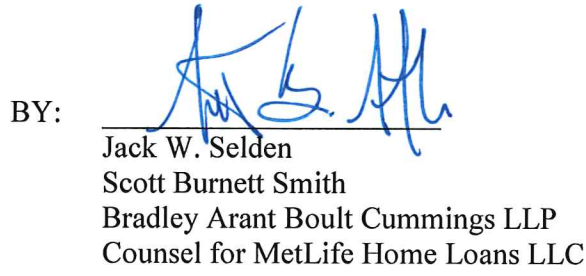 BY:
Jack W. Selden
Scott Burnett Smith
Bradley Arant Boult Cummings LLP
Counsel for MetLife Home Loans LLC